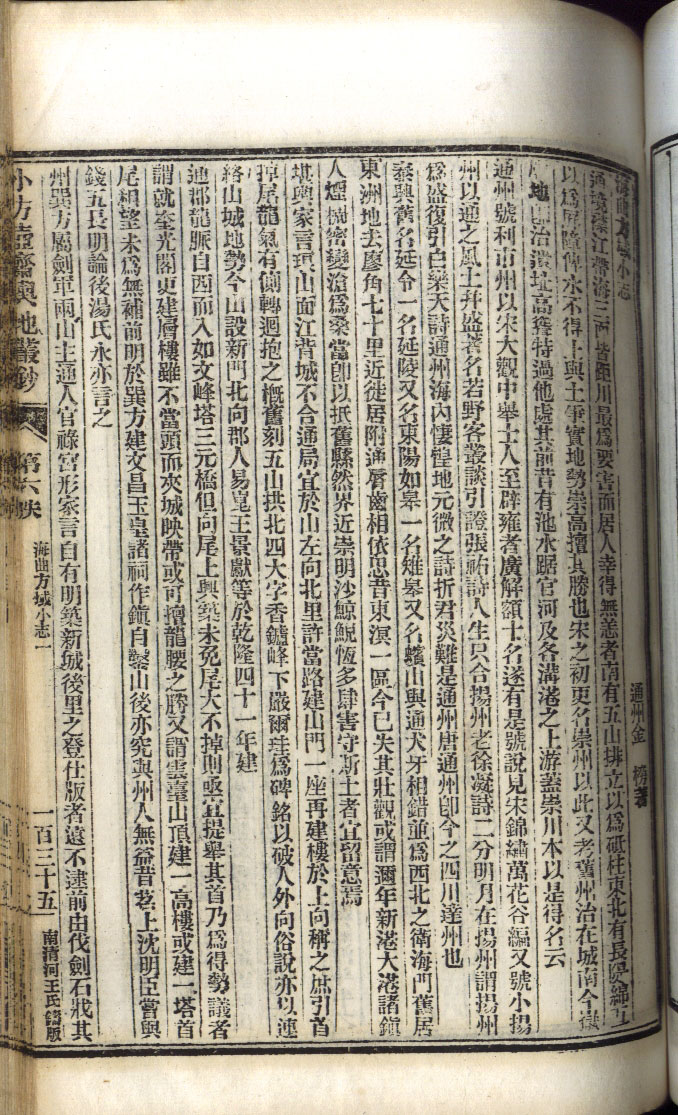 海曲方域小志
通州金 榜著
通境襟江帶海三面皆距川最爲要害而居人幸得無恙者南有五山排立以爲砥柱東北有長隄綿亘
以爲屏障俾水不得上與土爭實地勢崇高擅其勝也宋之初更名崇州以此又考舊州治在城南今
地治遺址高聳特過他處其前昔有池水踞官河及各溝港之上游蓋崇川本以是得名云
通州號利市州以宋大觀中舉士人至辟雍者廣解額十名遂有是號說見宋錦繡萬花谷編又號小揚
州以通之風土幷盛著名若野客叢談引證張祐詩人生只合揚州老徐凝詩二分明月在揚州謂揚州
爲盛復引白樂天詩通州海內悽惶地元微之詩折君災難是通州唐通州卽今之四川達州也
泰興舊名延令一名延陵又名東陽如皋一名雉皋又名蠙山與通犬牙相錯並爲西北之衛海門舊居
東洲地去廖角七十里近徙居附通脣齒相依思昔東溟一區今已失其壯觀或謂邇年新港大港諸鎭
人煙稠密變滄爲桑當卽以抵舊縣然界近崇明沙鯨鯢恆多肆害守斯土者宜留意焉
堪輿家言琅山面江背城不合通局宜於山左向北里許當路建山門一座再建樓於上向稱之庶引首
掉尾龍氣有側轉迴抱之概舊刻五山拱北四大字香鑪峰下嚴爾珪爲碑銘以破人外向俗說亦以連
絡山城地勢今山設新門北向郡人易嵬王景獻等於乾隆四十一年建
通郡龍脈自西而入如文峰塔三元橋但向尾上興築未免尾大不掉則亟宜提舉其首乃爲得勢議者
謂就奎光閣更建層樓雖不當頭而夾城映帶或可擅龍腰之勝又謂雲臺山頂建一高樓或建一塔首
尾相望未爲無補前明於巽方建文昌玉皇諸祠作鎭自鑿山後亦究與州人無益昔 上沈明臣嘗與
錢五長明論後湯氏永亦言之
州巽方屬劍軍兩山主通人官祿宮形家言自有明築新城後里之登仕版者遠不逮前由伐劍石戕其
小方壺齋輿地叢鈔 第六帙 海曲方域小志一 一百三十五 南清河王氏鑄版